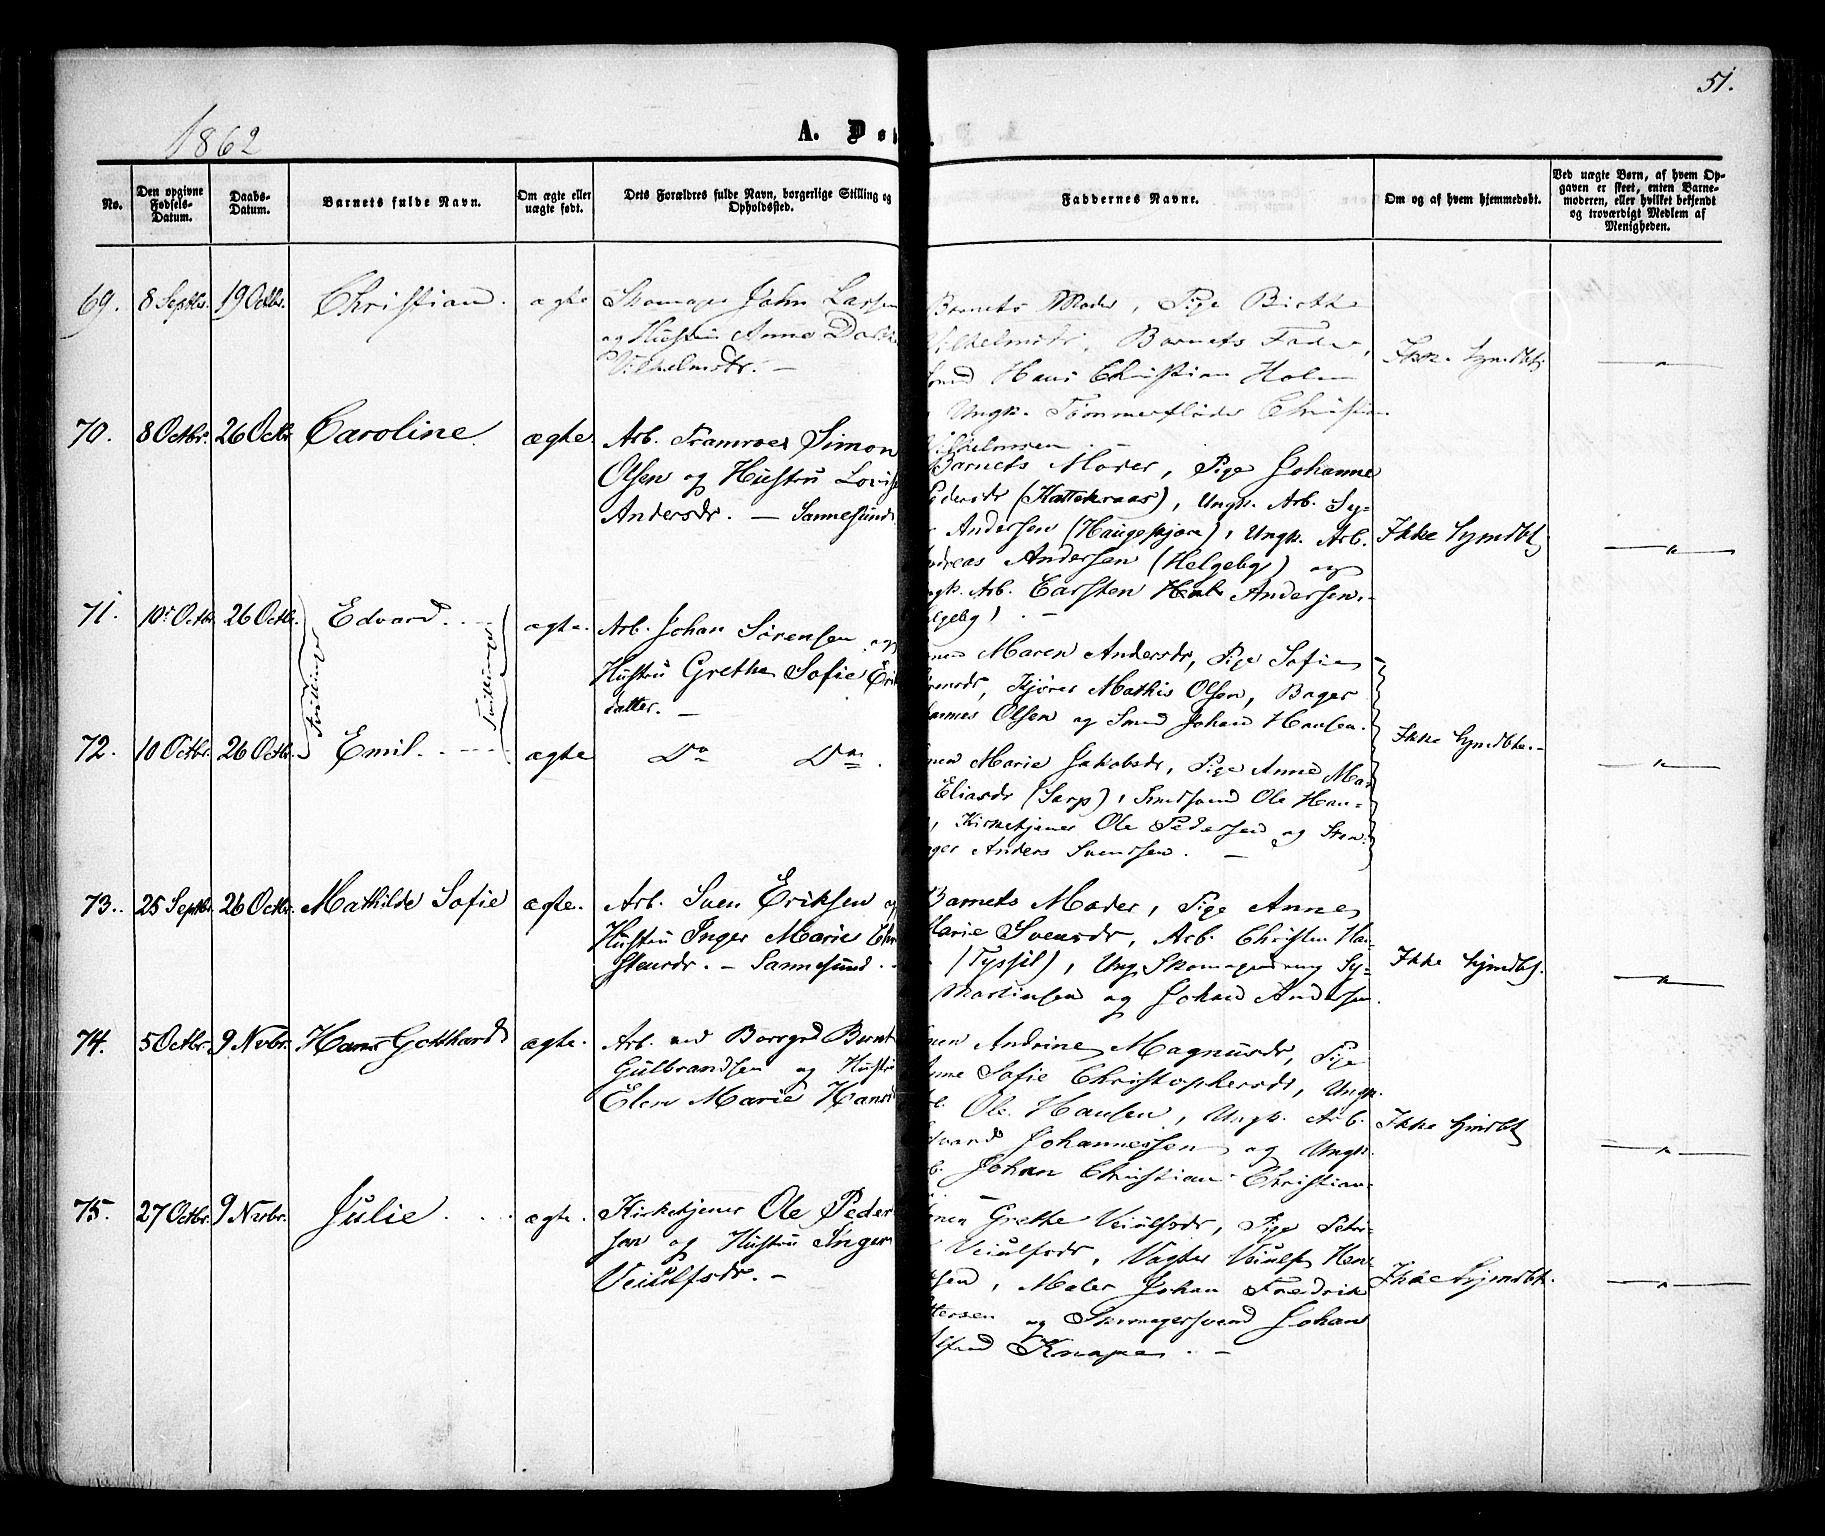 51.
1862
A. Døb
No.
Den opgivne Fødsels-Datum.
Daabs-Datum.
Barnets fulde Navn.
Om ægte eller uægte født.
Dets Forældres fulde Navn, borgerlige Stilling og Opholdssted.
Faddernes Navne.
Om og af hvem hjemmedøbt.
Ved uægte Børn, af hvem Opgaven er skeet, enten Barnemoderen, eller hvilket bekjendt og troværdigt Medlem af Menigheden.
69. 8 Septbr. 19 Octbr. Christian. ægte
Skomager John Larsen
og Hustru Anne
Vilhelmsdr. —
Barnets Moder, Pige
Vilhelmsdr, Barnets Fader,
Hans Christian Holm
Ungk. Tømmerfløder Christian
Vilhelmsen. —
Ikke hjmdbt.
70. 8 Octbr. 26 Octbr Caroline. ægte.
Arb. Simon
Olsen og Hustru Lovise
Andersdr. — Sannesund
Barnets Moder, Pige Johanne
Pedersdr (Kattekraas), Ungk. Arb. Sy-
Andersen (Haugeskjære), Ungk. Arb.
Andreas Andersen (Helgeby) og
Ungk. Arb. Carsten Andersen
(Helgeby). —
Ikke hjmdbt
71. 10 Octbr. 26 Octbr. Edvard. ægte.
Tvillinger
Tvillinger
Arb. Johan Sørensen og
Hustru Grethe Sofie Eriks
datter. —
Maren Andersdr, Pige Sofie
Mathis Olsen, Bager
Johannes Olsen og Smed Johan Hansen.
72. 10 Octbr. 26 Octbr. Emil. ægte
Do Do.
Konen Marie Jakobsdr, Pige Anne Mar
Eliasdr (Sarp), Smedsvend Ole Han-
Kirketjener Ole Pedersen og Sten-
Anders Svendsen. —
Ikke hjmdbte. —
73. 25 Septbr. 26 Octbr. Mathilde Sofie ægte.
Arb. Sven Eriksen og
Hustru Inger Marie Chri
stensdr. — Sannesund. —
Barnets Moder, Pige Anne
Marie Svensdr, Arb. Christen Han
(Tyssil), Ung. Sy-
Martinsen og Johan Andersen.
Ikke hjmdbt.
74. 5 Octbr. 9 Nvbr. Hans Gotthard ægte.
Arb. ved Borregrd Bernt
Gulbrandsen og Hustru
Elen Marie Hansd
Konen Andrine Magnusdr, Pige
Anne Sofie Christophersdr, Ungk.
Arb. Ole Hansen, Ungk. Arb.
Edvard Johannessen og Ungk.
Arb. Johan Christian Christian-
Ikke hjmdbt
75. 27 Octbr. 9 Nvbr. Julie. ægte.
Kirketjener Ole Peder
sen og Hustru Inger
Veiulfsdr. —
Konen Grethe Veiulfsdr, Pige Petri-
Veiulfsdr, Vagter Veiulf Hen
Maler Johan Fredrik
Pettersen og Skomagersvend Johan
Alfred Knape. —
Ikke hjmdbt.